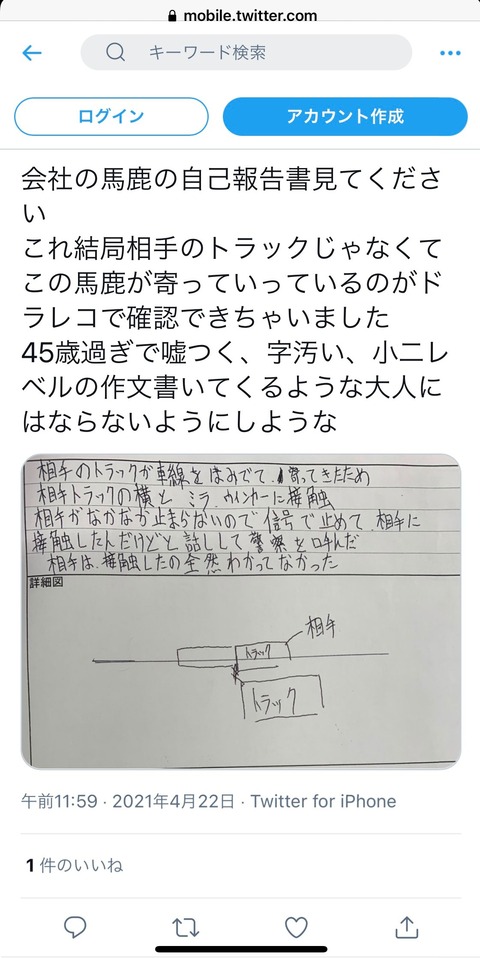 mobile.twitter.com
キーワード検索
ログイン
アカウント作成
会社の馬鹿の自己報告書見てくださ
い
これ結局相手のトラックじゃなくて
この馬鹿が寄っていっているのがド
ラレコで確認できちゃいました
45歳過ぎで嘘つく、字汚い、小二レ
ベルの作文書いてくるような大人に
はならないようにしような
相手のトラックが車線をはみでて、寄ってきたため
相手トラックの横と ミラ、ウィンカーに接触
相手がなかなか止まらないので 信号で止めて 相手に
接触したんだけどと 話しして 警察を呼んだ
相手は、接触したの全然わかってなかった
詳細図
相手
トラック
トラック
午前11:59 · 2021年4月22日 · Twitter for iPhone
1 件のいいね